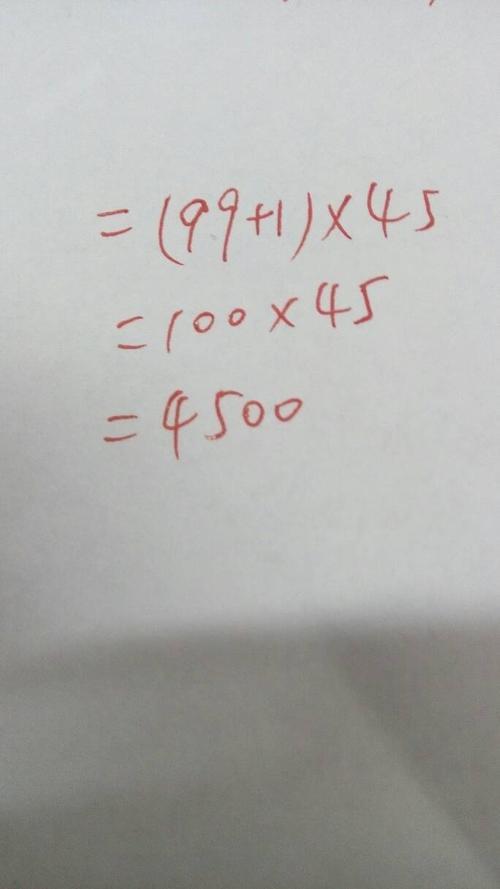 =(99+1)×45
=100×45
=4500